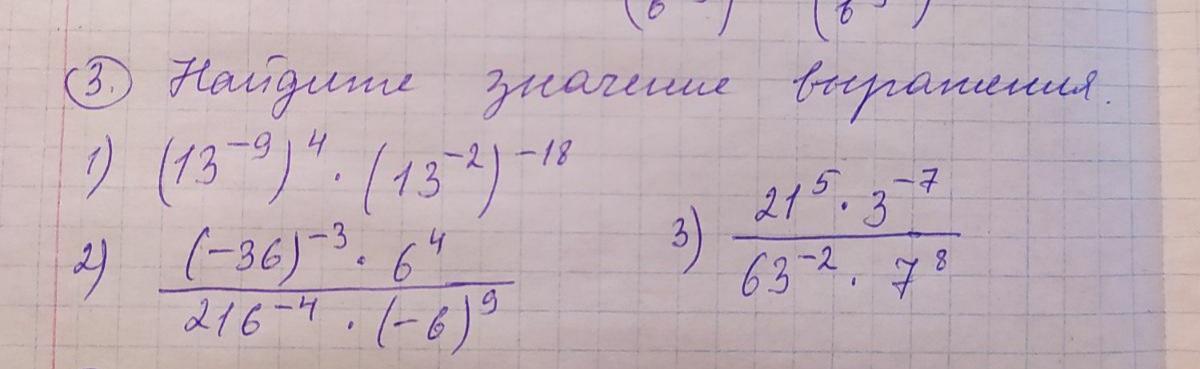 (b ) (b )
3. Найдите значение выражения.
1) (13^{-9})^4 · (13^{-2})^{-18}
2) \frac{(-36)^{-3} · 6^4}{216^{-4} · (-6)^9}
3) \frac{21^5 · 3^{-7}}{63^{-2} · 7^8}